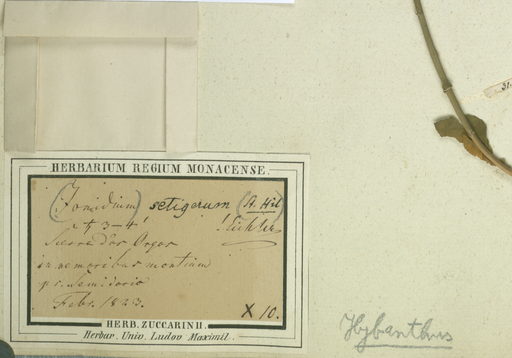 HERBARIUM REGIUM MONACENSE.
(Jonidium) setigerum (St. Hil)
♄ 3–4' ! Eichler
Sierra dos Orgos
in nemoribus montium
pr.
Febr. 1823.
X 10.
HERB. ZUCCARINII.
Herbar. Univ. Ludov. Maximil.
Hybanthus
31.